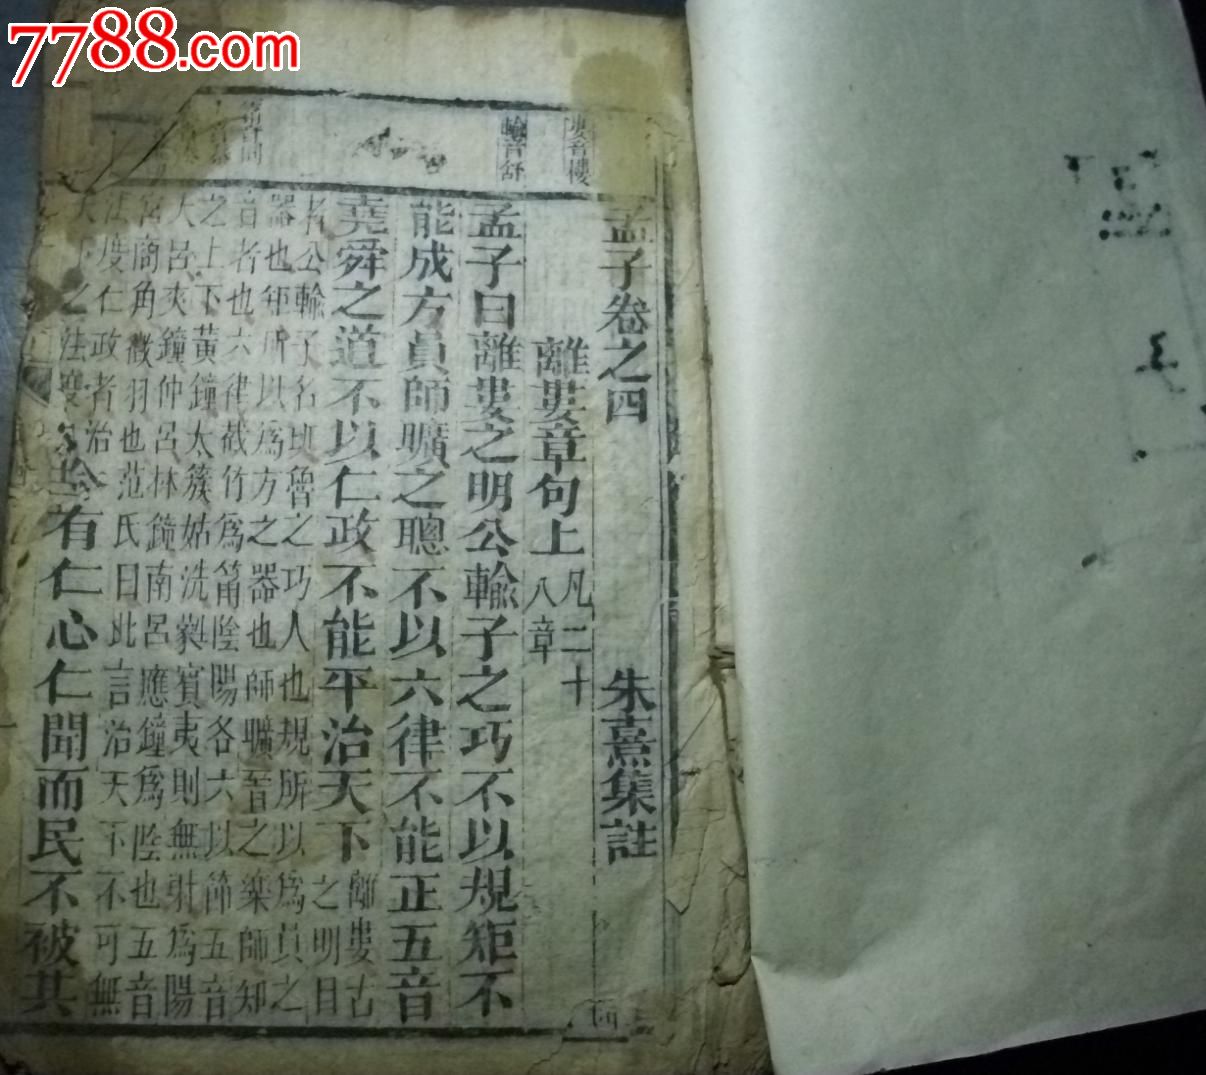 7788.com
婁音樓
輸音舒
孟子卷之四 朱熹集註
離婁章句上 凡二十
八章
孟子曰離婁之明公輸子之巧不以規矩不
能成方員師曠之聰不以六律不能正五音
堯舜之道不以仁政不能平治天下 離婁古
之明目
者公輸子名班魯之巧人也規所以爲員之
器也矩所以爲方之器也師曠晉之樂師知
音者也六律截竹爲筩陰陽各六以節五音
之上下黃鐘太簇姑洗蕤賓夷則無射爲陽
大呂夾鐘仲呂林鐘南呂應鐘爲陰也五音
宮商角徵羽也范氏曰此言治天下不可無
法度仁政者治
天下之法度
今有仁心仁聞而民不被其